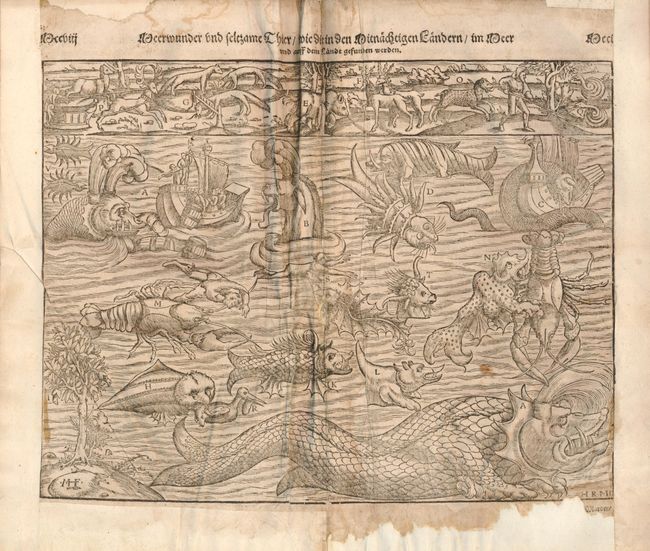 Meerwunder vnd seltzame Thier/ wie die in den Mitnächtigen Ländern/ im Meer
vnd auff dem Lande gefunden werden.
G E O
A B D C
N
M
K L
H R A
MF